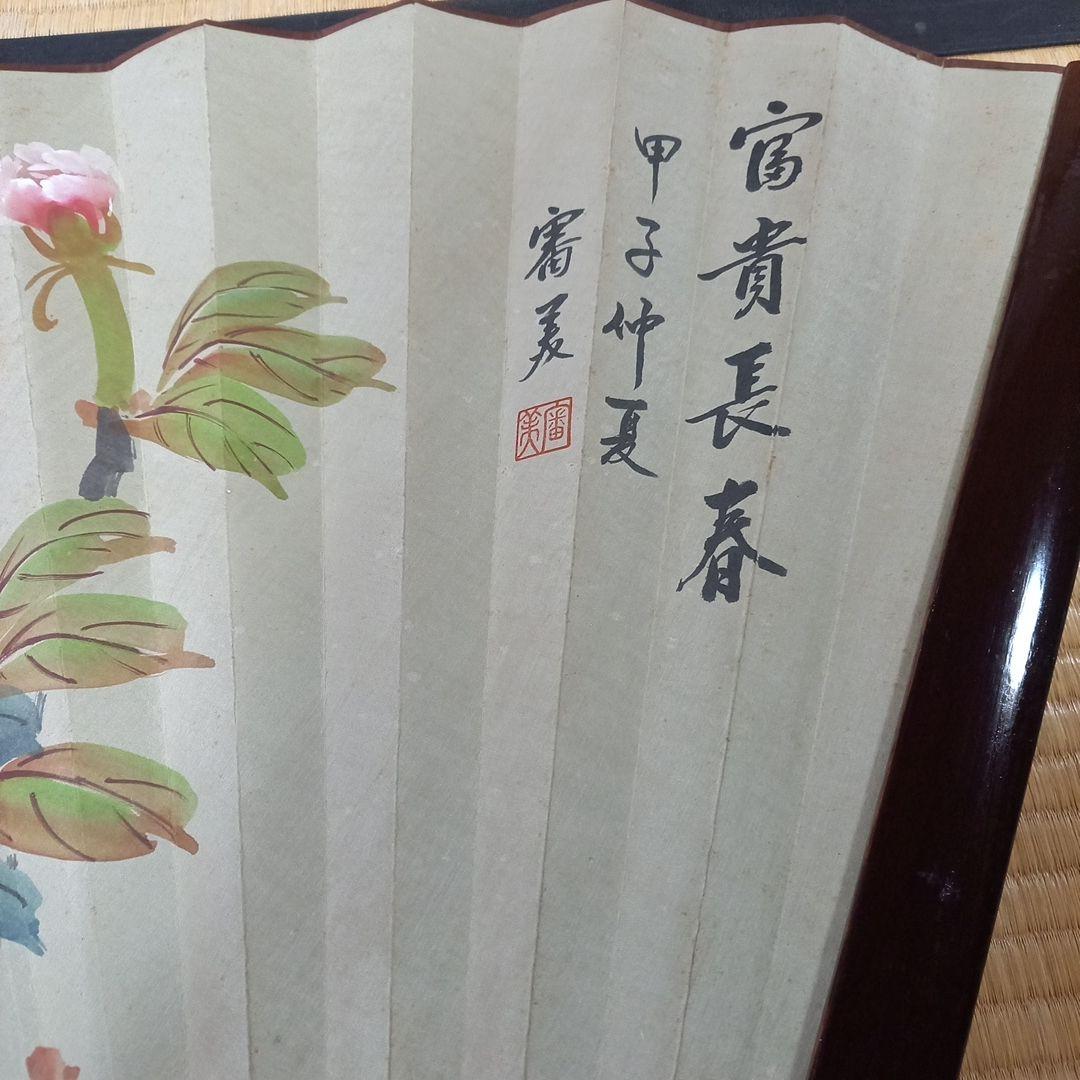 富貴長春
甲子仲夏
審美
審美